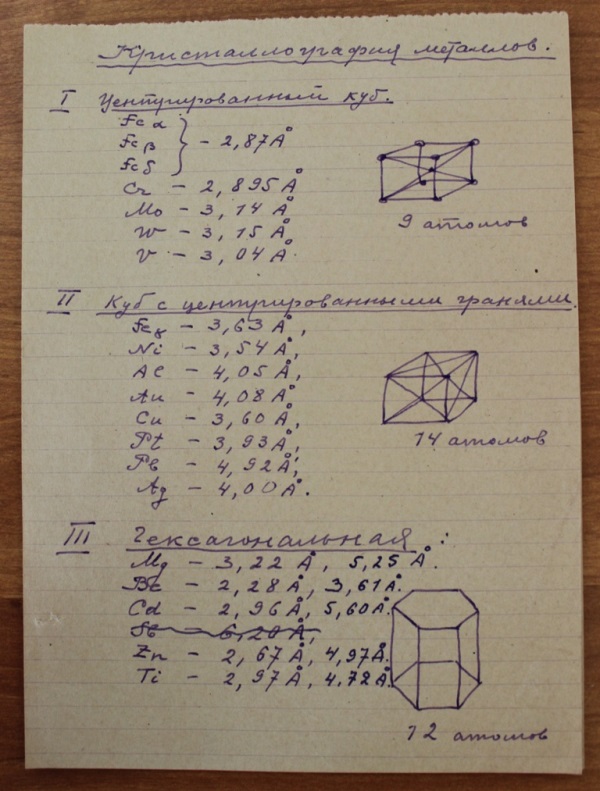 Кристаллография металлов.
I Центрированный куб.
Fe α
Fe β } - 2,87Å
Fe δ
Cr - 2,895 Å
Mo - 3,14 Å
W - 3,15 Å
V - 3,04 Å.
9 атомов
II Куб с центрированными гранями.
Fe γ - 3,63 Å,
Ni - 3,54 Å,
Al - 4,05 Å,
Au - 4,08 Å
Cu - 3,60 Å,
Pt - 3,93 Å,
Pb - 4,92 Å,
Ag - 4,00 Å.
14 атомов
III Гексагональная:
Mg - 3,22 Å, 5,25 Å.
Be - 2,28 Å, 3,61 Å.
Cd - 2,96 Å, 5,60 Å.
Sb - 6,20 Å,
Zn - 2,67 Å, 4,97 Å.
Ti - 2,97 Å, 4,72 Å.
12 атомов